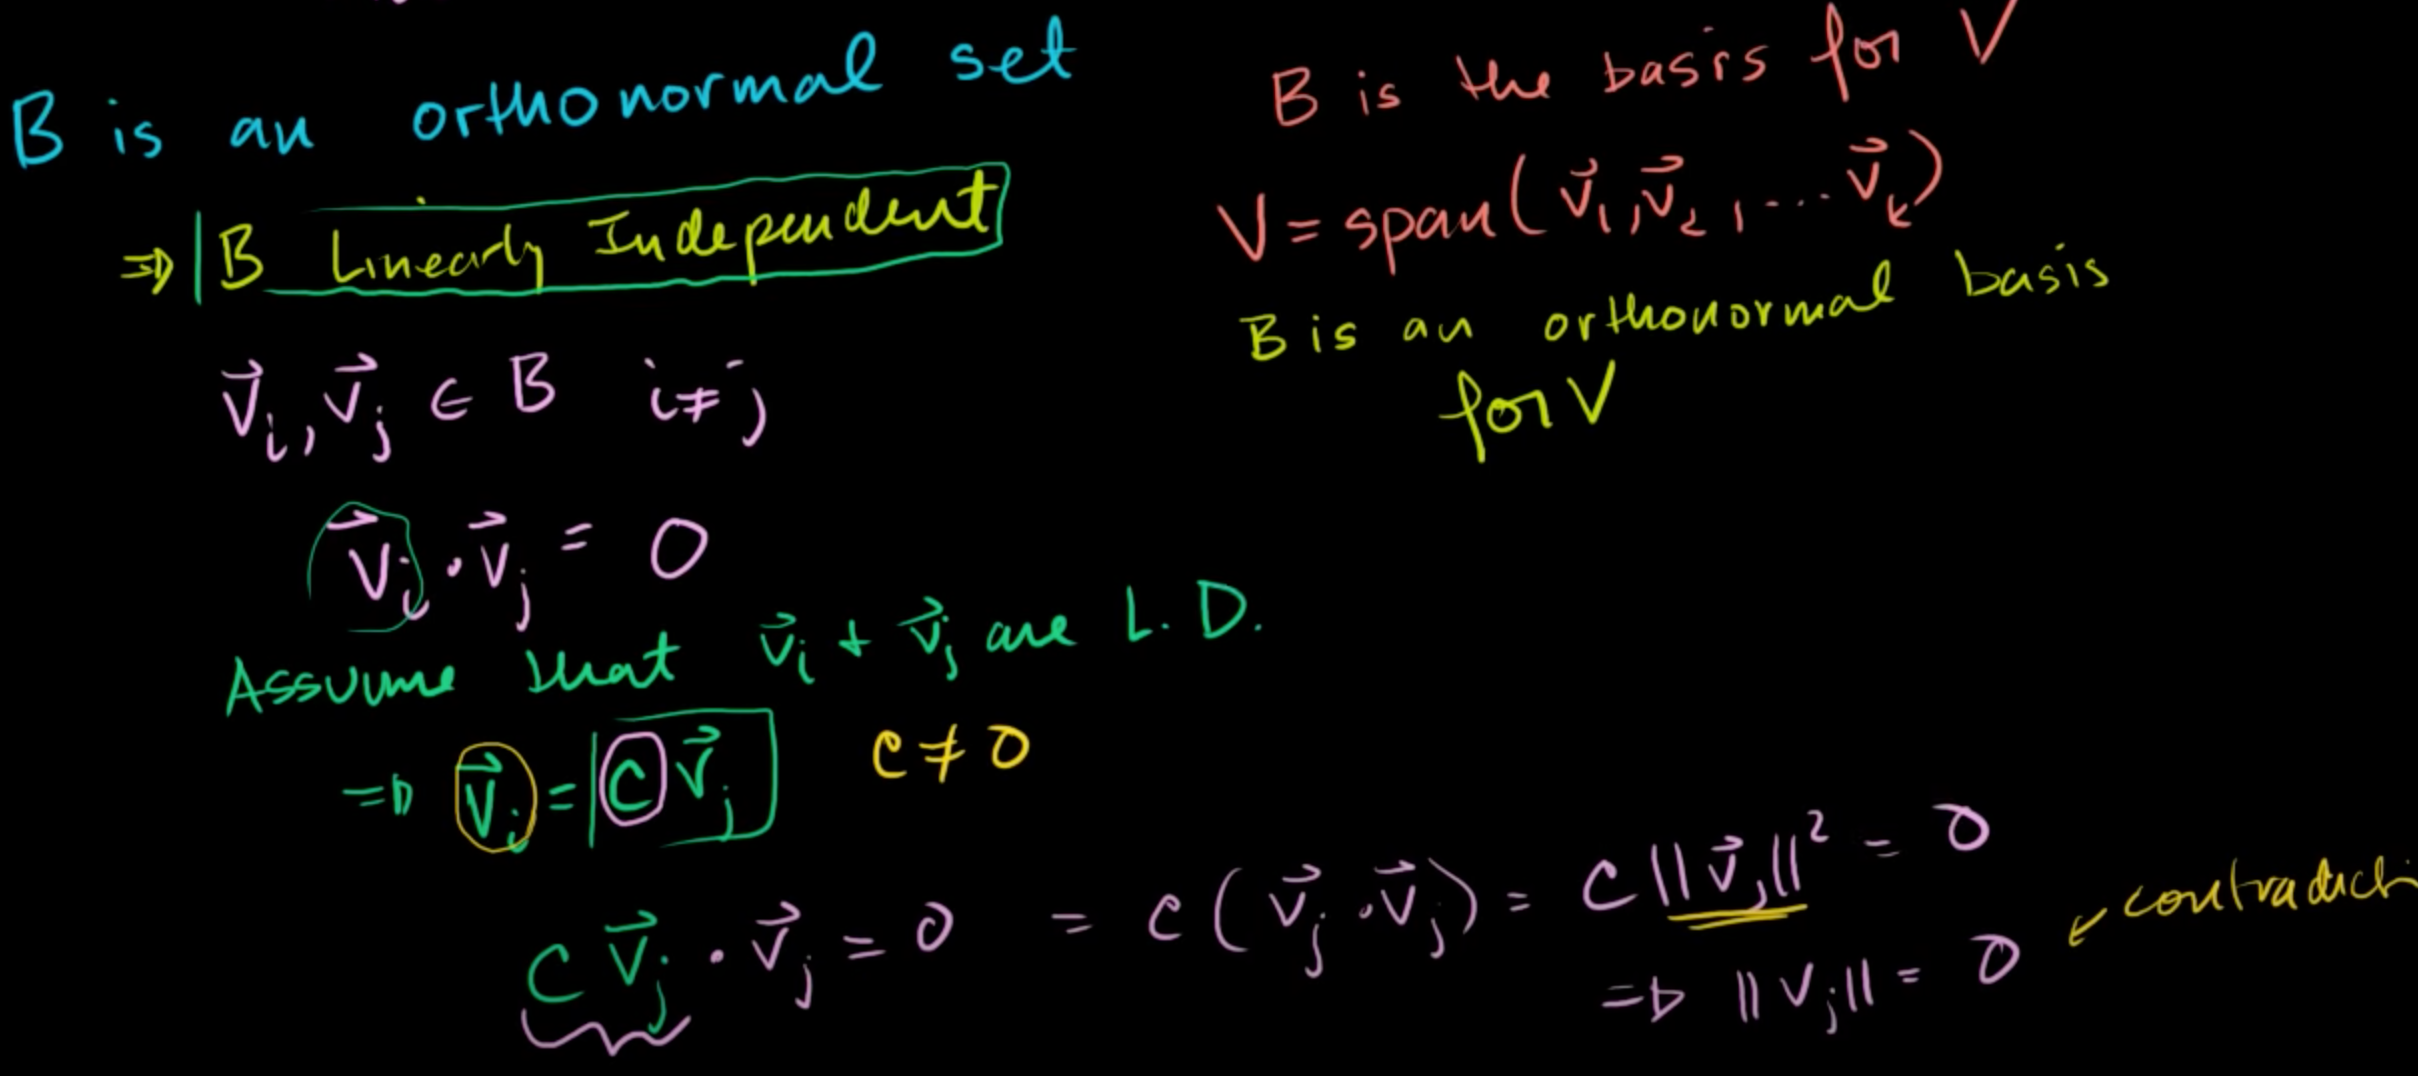 B is an orthonormal set
⇒ B Linearly Independent
v⃗ᵢ, v⃗ⱼ ∈ B i ≠ j
v⃗ᵢ · v⃗ⱼ = 0
Assume that v⃗ᵢ + v⃗ⱼ are L.D.
⇒ v⃗ᵢ = c v⃗ⱼ c ≠ 0
c v⃗ⱼ · v⃗ⱼ = 0 = c(v⃗ⱼ · v⃗ⱼ) = c||v⃗ⱼ||² = 0
⇒ ||vⱼ|| = 0 ↙ contradicti
B is the basis for V
V = span(v⃗₁, v⃗₂, ... v⃗ₖ)
B is an orthonormal basis
for V